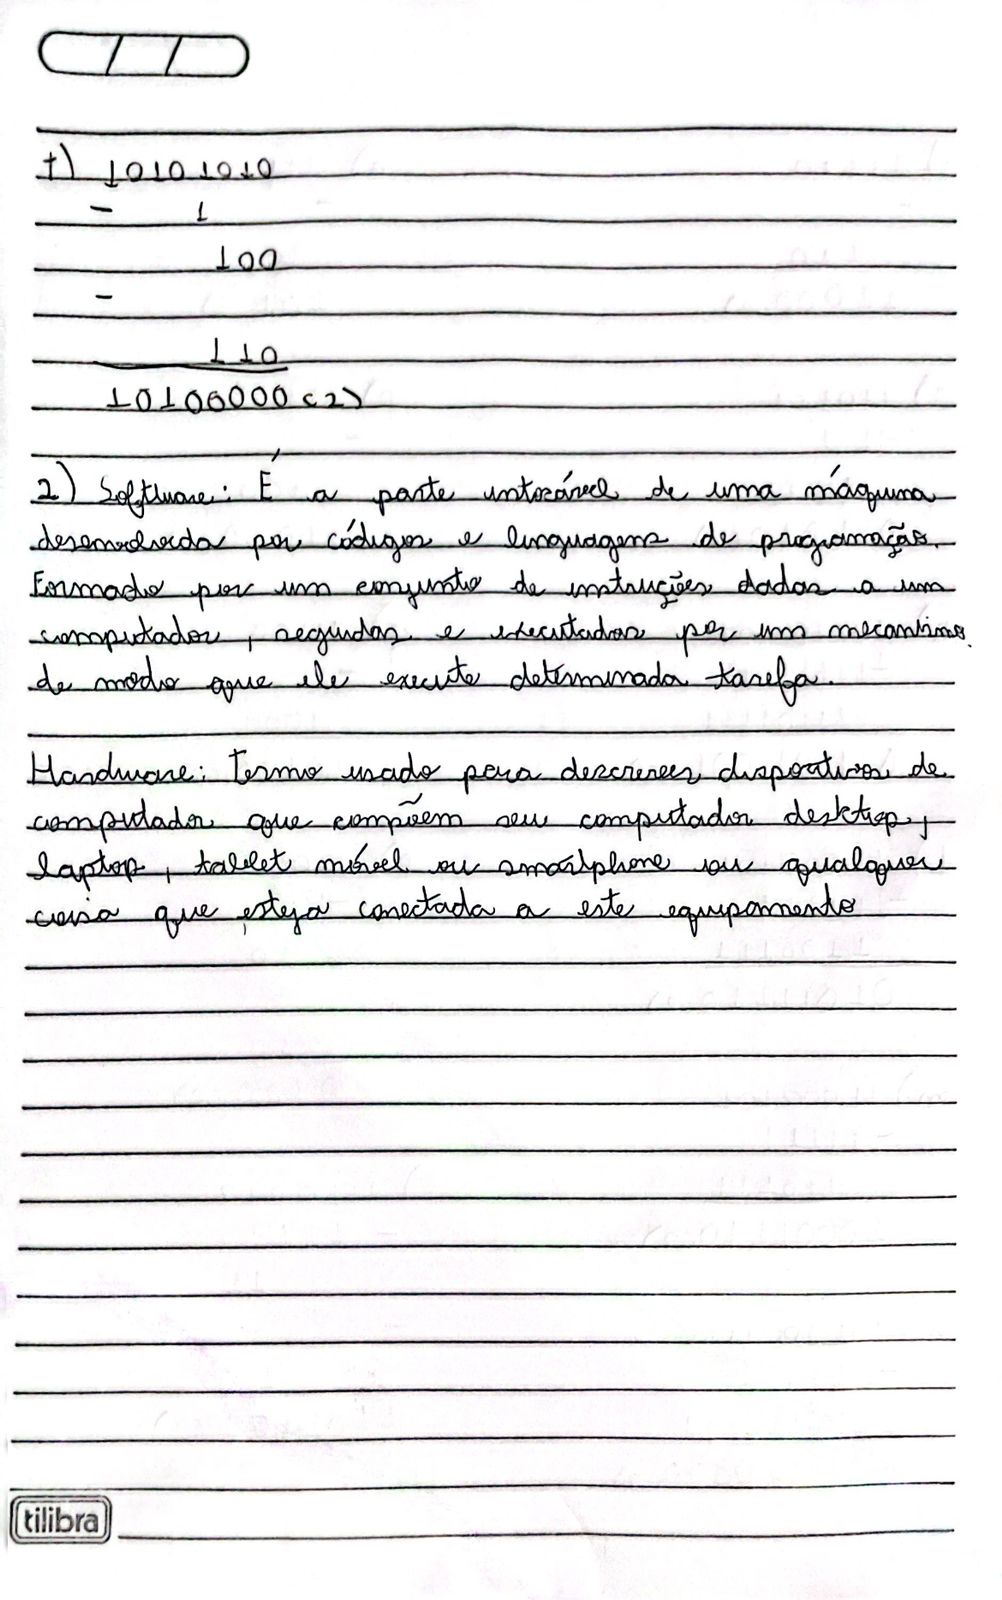 t) 10101010
- 1
100
-
110
10100000(2)
2) Software: É a parte intocável de uma máquina
desenvolvida por códigos e linguagens de programação.
Formado por um conjunto de instruções dadas a um
computador, seguidas e executadas por um mecanismo.
de modo que ele execute determinada tarefa.
Hardware: Termo usado para descrever dispositivos de
computador que compõem seu computador desktop,
laptop, tablet móvel ou smartphone ou qualquer
coisa que esteja conectada a este equipamento
tilibra